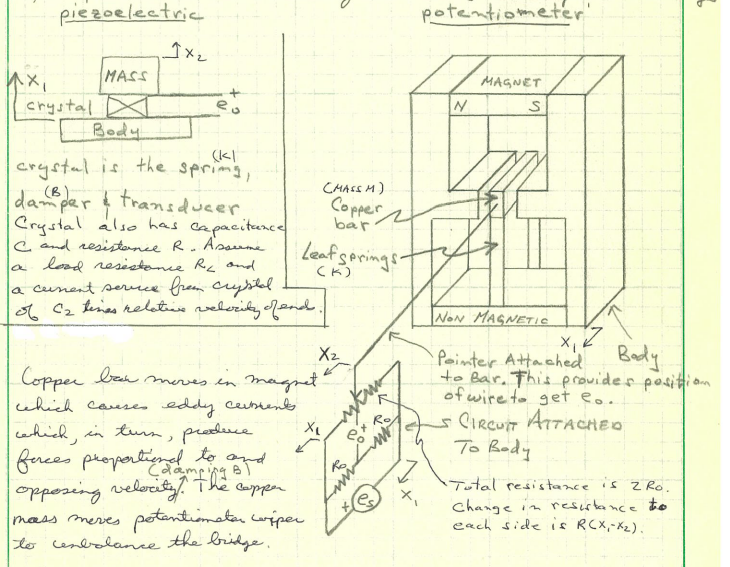 piezoelectric
X₂
MASS
X₁
crystal
+
e₀
Body
crystal is the spring, (K)
damper (B) & transducer
Crystal also has capacitance
C and resistance R. Assume
a load resistance R_L and
a current source from crystal
of C₂ times relative velocity of end.
potentiometer
MAGNET
N S
(MASS M)
Copper
bar
Leaf springs
(K)
NON MAGNETIC
X₁
Body
X₂
Pointer Attached
to Bar. This provides position
of wire to get e₀.
CIRCUIT ATTACHED
To Body
X₁
e₀
+
R₀
R₀
+
e_s
X₁
Total resistance is 2R₀.
Change in resistance to
each side is R(X₁-X₂).
Copper bar moves in magnet
which causes eddy currents
which, in turn, produce
forces proportional to and
(damping B)
opposing velocity. The copper
mass moves potentiometer wiper
to unbalance the bridge.